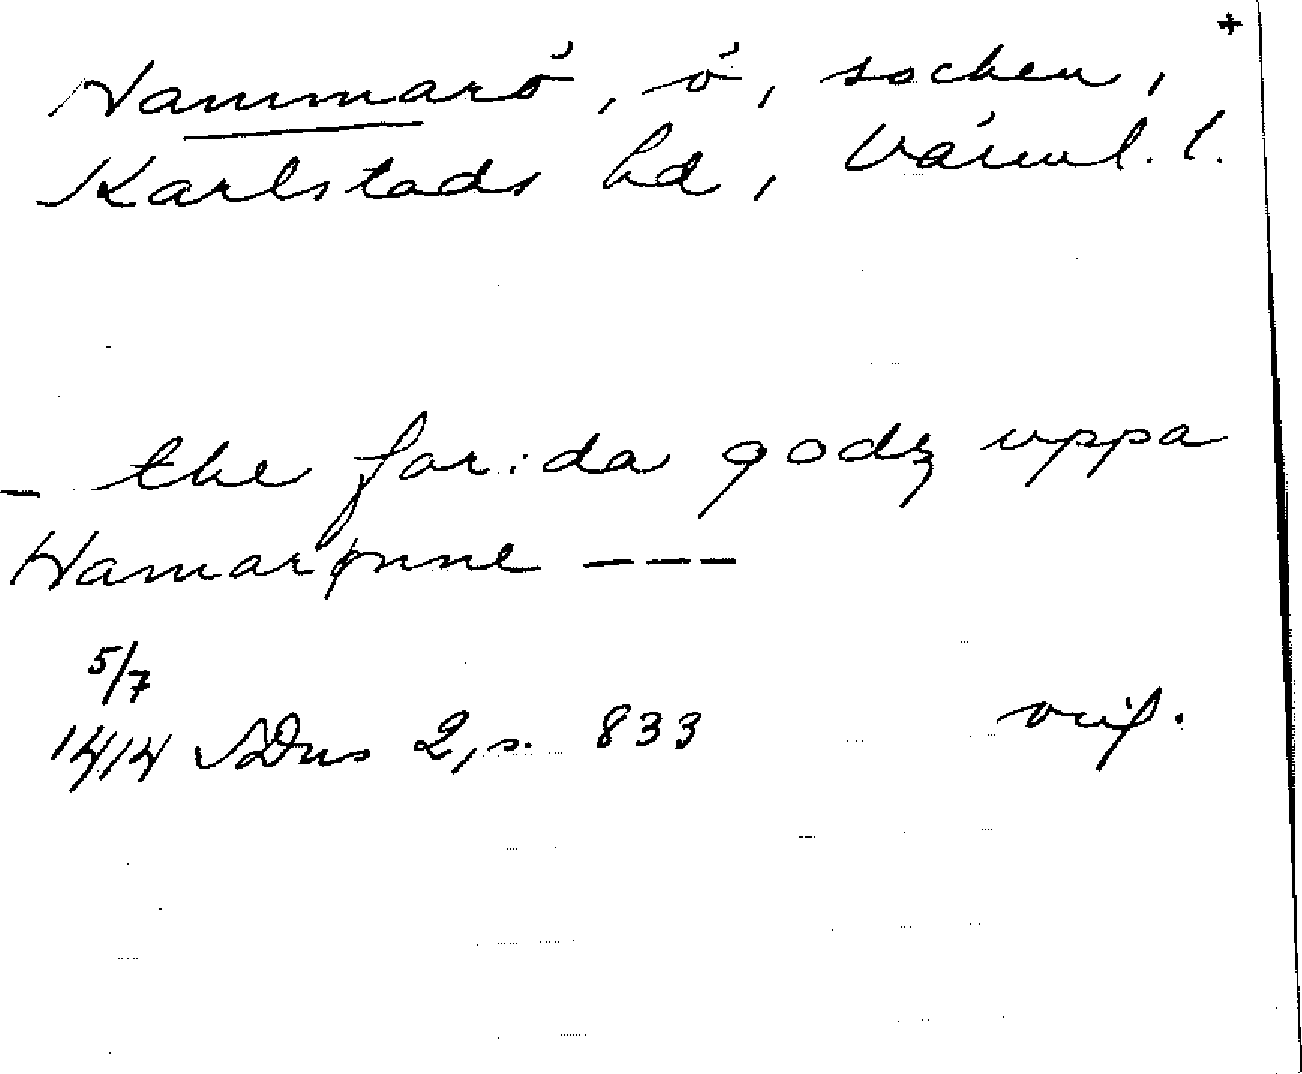 +
Hammarö, ö, socken,
Karlstads hd, Värml. l.
- the for:da godz uppa
Hamarønne ---
5/7
1414 SDns 2, s. 833 orig.